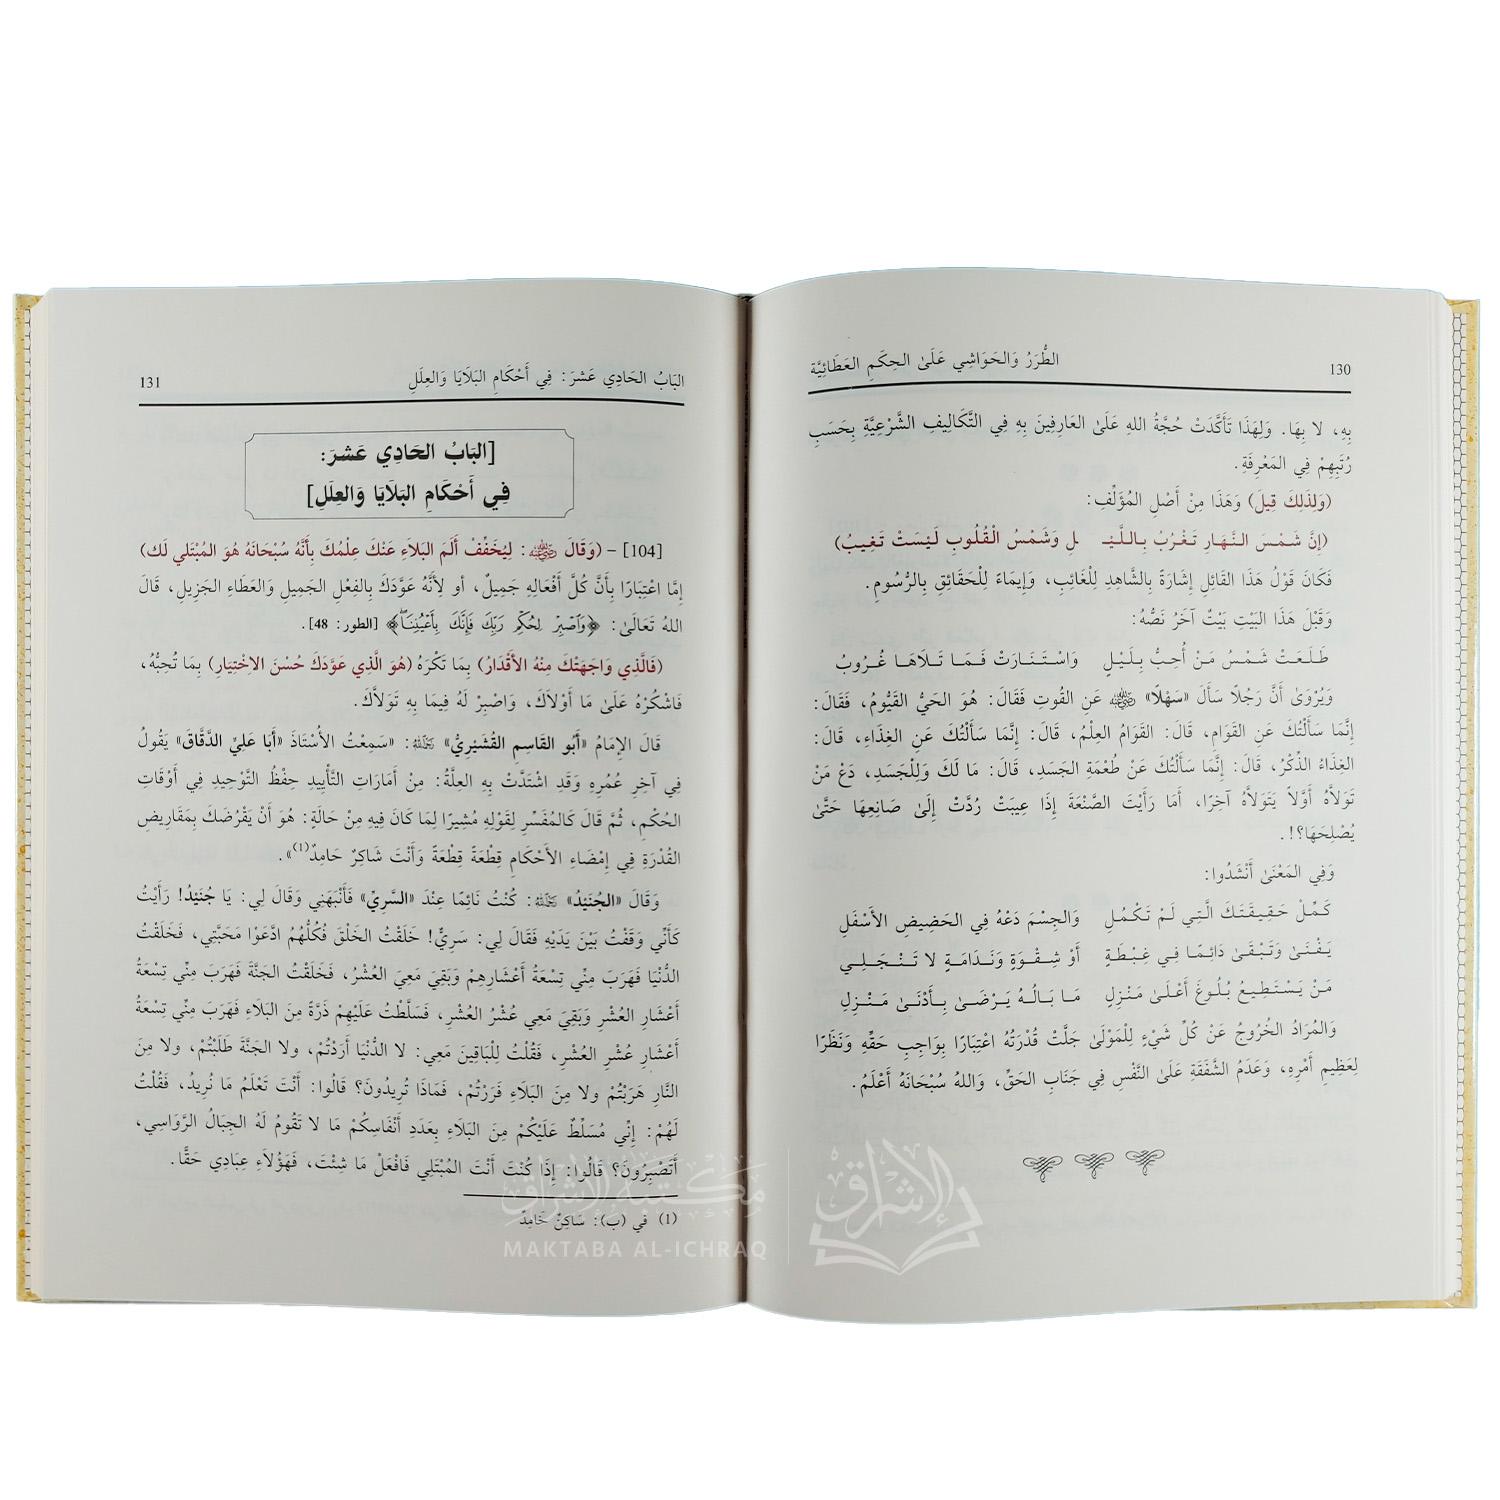 130 الطُّرَرُ وَالحَوَاشِي عَلَىٰ الحِكَمِ العَطَائِيَّة
بِهِ، لا بِهَا. وَلِهَذَا تَأَكَّدَتْ حُجَّةُ اللهِ عَلَىٰ العَارِفِينَ بِهِ فِي التَّكَالِيفِ الشَّرْعِيَّةِ بِحَسَبِ
رُتَبِهِمْ فِي المَعْرِفَةِ.
(وَلِذَلِكَ قِيلَ) وَهَذَا مِنْ أَصْلِ المُؤَلِّفِ:
(إنَّ شَمْسَ النَّهَارِ تَغْرُبُ بِاللَّيْـ ـلِ وَشَمْسُ الْقُلُوبِ لَيْسَتْ تَغِيبُ)
فَكَانَ قَوْلُ هَذَا القَائِلِ إشَارَةً بِالشَّاهِدِ لِلْغَائِبِ، وَإِيمَاءً لِلْحَقَائِقِ بِالرُّسُومِ.
وَقَبْلَ هَذَا البَيْتِ بَيْتٌ آخَرُ نَصُّهُ:
طَلَعَتْ شَمْسُ مَنْ أُحِبُّ بِلَيْلٍ وَاسْتَنَارَتْ فَمَا تَلَاهَا غُرُوبُ
وَيُرْوَىٰ أَنَّ رَجُلًا سَأَلَ «سَهْلًا» رضي الله عنه عَنِ القُوتِ فَقَالَ: هُوَ الحَيُّ القَيُّومُ، فَقَالَ:
إِنَّمَا سَأَلْتُكَ عَنِ القَوَامِ، قَالَ: القَوَامُ العِلْمُ، قَالَ: إِنَّمَا سَأَلْتُكَ عَنِ الغِذَاءِ، قَالَ:
الغِذَاءُ الذِّكْرُ، قَالَ: إِنَّمَا سَأَلْتُكَ عَنْ طُعْمَةِ الجَسَدِ، قَالَ: مَا لَكَ وَلِلْجَسَدِ، دَعْ مَنْ
تَوَلاَّهُ أَوَّلاً يَتَوَلاَّهُ آخِرًا، أَمَا رَأَيْتَ الصَّنْعَةَ إِذَا عِيبَتْ رُدَّتْ إِلَىٰ صَانِعِهَا حَتَّىٰ
يُصْلِحَهَا؟!.
وَفِي المَعْنَىٰ أَنْشَدُوا:
كَمِّلْ حَقِيقَتَكَ الَّتِي لَمْ تَكْمُلِ وَالجِسْمَ دَعْهُ فِي الحَضِيضِ الأَسْفَلِ
يَفْنَىٰ وَتَبْقَىٰ دَائِمًا فِي غِبْطَةٍ أَوْ شِقْوَةٍ وَنَدَامَةٍ لا تَنْجَلِي
مَنْ يَسْتَطِيعُ بُلُوغَ أَعْلَىٰ مَنْزِلٍ مَا بَالُهُ يَرْضَىٰ بِأَدْنَىٰ مَنْزِلِ
وَالمُرَادُ الخُرُوجُ عَنْ كُلِّ شَيْءٍ لِلْمَوْلَىٰ جَلَّتْ قُدْرَتُهُ اعْتِبَارًا بِوَاجِبِ حَقِّهِ وَنَظَرًا
لِعَظِيمِ أَمْرِهِ، وَعَدَمُ الشَّفَقَةِ عَلَىٰ النَّفْسِ فِي جَنَابِ الحَقِّ، وَاللهُ سُبْحَانَهُ أَعْلَمُ.
البَابُ الحَادِي عَشَرَ: فِي أَحْكَامِ البَلَايَا وَالعِلَلِ 131
[البَابُ الحَادِي عَشَرَ:
فِي أَحْكَامِ البَلَايَا وَالعِلَلِ]
[104] – (وَقَالَ رضي الله عنه: لِيُخَفِّفْ أَلَمَ البَلَاءِ عَنْكَ عِلْمُكَ بِأَنَّهُ سُبْحَانَهُ هُوَ المُبْتَلِي لَكَ)
إِمَّا اعْتِبَارًا بِأَنَّ كُلَّ أَفْعَالِهِ جَمِيلٌ، أو لِأَنَّهُ عَوَّدَكَ بِالفِعْلِ الجَمِيلِ وَالعَطَاءِ الجَزِيلِ، قَالَ
اللهُ تَعَالَىٰ: ﴿وَٱصْبِرْ لِحُكْمِ رَبِّكَ فَإِنَّكَ بِأَعْيُنِنَا﴾ [الطور: 48].
(فَالَّذِي وَاجَهَتْكَ مِنْهُ الأَقْدَارُ) بِمَا تَكْرَهُ (هُوَ الَّذِي عَوَّدَكَ حُسْنَ الاخْتِيَارِ) بِمَا تُحِبُّهُ،
فَاشْكُرْهُ عَلَىٰ مَا أَوْلاَكَ، وَاصْبِرْ لَهُ فِيمَا بِهِ تَوَلاَّكَ.
قَالَ الإِمَامُ «أَبُو القَاسِمِ القُشَيْرِيُّ» رحمه الله: «سَمِعْتُ الأُسْتَاذَ «أَبَا عَلِيٍّ الدَّقَّاقَ» يَقُولُ
فِي آخِرِ عُمُرِهِ وَقَدِ اشْتَدَّتْ بِهِ العِلَّةُ: مِنْ أَمَارَاتِ التَّأْيِيدِ حِفْظُ التَّوْحِيدِ فِي أَوْقَاتِ
الحُكْمِ، ثُمَّ قَالَ كَالمُفَسِّرِ لِقَوْلِهِ مُشِيرًا لِمَا كَانَ فِيهِ مِنْ حَالَةٍ: هُوَ أَنْ يَقْرُضَكَ بِمَقَارِيضِ
القُدْرَةِ فِي إِمْضَاءِ الأَحْكَامِ قِطْعَةً قِطْعَةً وَأَنْتَ شَاكِرٌ حَامِدٌ(1)».
وَقَالَ «الجُنَيْدُ» رحمه الله: كُنْتُ نَائِمًا عِنْدَ «السَّرِيِّ» فَأَنْبَهَنِي وَقَالَ لِي: يَا جُنَيْدُ! رَأَيْتُ
كَأَنِّي وَقَفْتُ بَيْنَ يَدَيْهِ فَقَالَ لِي: سَرِيُّ! خَلَقْتُ الخَلْقَ فَكُلُّهُمُ ادَّعَوْا مَحَبَّتِي، فَخَلَقْتُ
الدُّنْيَا فَهَرَبَ مِنِّي تِسْعَةُ أَعْشَارِهِمْ وَبَقِيَ مَعِيَ العُشْرُ، فَخَلَقْتُ الجَنَّةَ فَهَرَبَ مِنِّي تِسْعَةُ
أَعْشَارِ العُشْرِ وَبَقِيَ مَعِي عُشْرُ العُشْرِ، فَسَلَّطْتُ عَلَيْهِمْ ذَرَّةً مِنَ البَلَاءِ فَهَرَبَ مِنِّي تِسْعَةُ
أَعْشَارِ عُشْرِ العُشْرِ، فَقُلْتُ لِلْبَاقِينَ مَعِي: لا الدُّنْيَا أَرَدْتُمْ، ولا الجَنَّةَ طَلَبْتُمْ، ولا مِنَ
النَّارِ هَرَبْتُمْ ولا مِنَ البَلَاءِ فَرَرْتُمْ، فَمَاذَا تُرِيدُونَ؟ قَالُوا: أَنْتَ تَعْلَمُ مَا نُرِيدُ، فَقُلْتُ
لَهُمْ: إِنِّي مُسَلِّطٌ عَلَيْكُمْ مِنَ البَلَاءِ بِعَدَدِ أَنْفَاسِكُمْ مَا لا تَقُومُ لَهُ الجِبَالُ الرَّوَاسِي،
أَتَصْبِرُونَ؟ قَالُوا: إِذَا كُنْتَ أَنْتَ المُبْتَلِي فَافْعَلْ مَا شِئْتَ، فَهَؤُلَاءِ عِبَادِي حَقًّا.
(1) في (ب): سَاكِنٌ حَامِدٌ
مكتبة الإشراق
MAKTABA AL-ICHRAQ
الإشراق